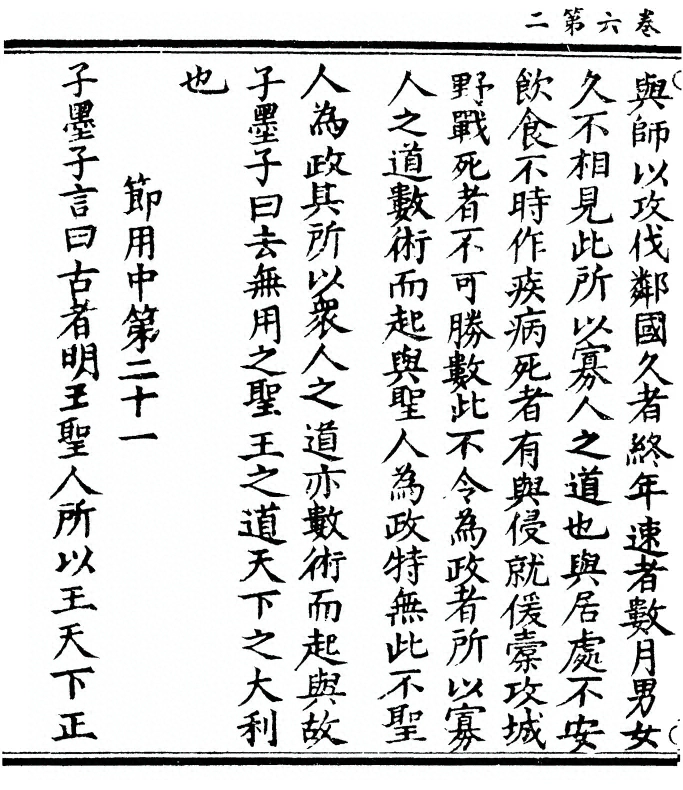 卷六第二
與師以攻伐鄰國久者終年速者數月男女
久不相見此所以寡人之道也與居處不安
飲食不時作疾病死者有與侵就偄橐攻城
野戰死者不可勝數此不令為政者所以寡
人之道數術而起與聖人為政特無此不聖
人為政其所以衆人之道亦數術而起與故
子墨子曰去無用之聖王之道天下之大利
也
節用中第二十一
子墨子言曰古者明王聖人所以王天下正